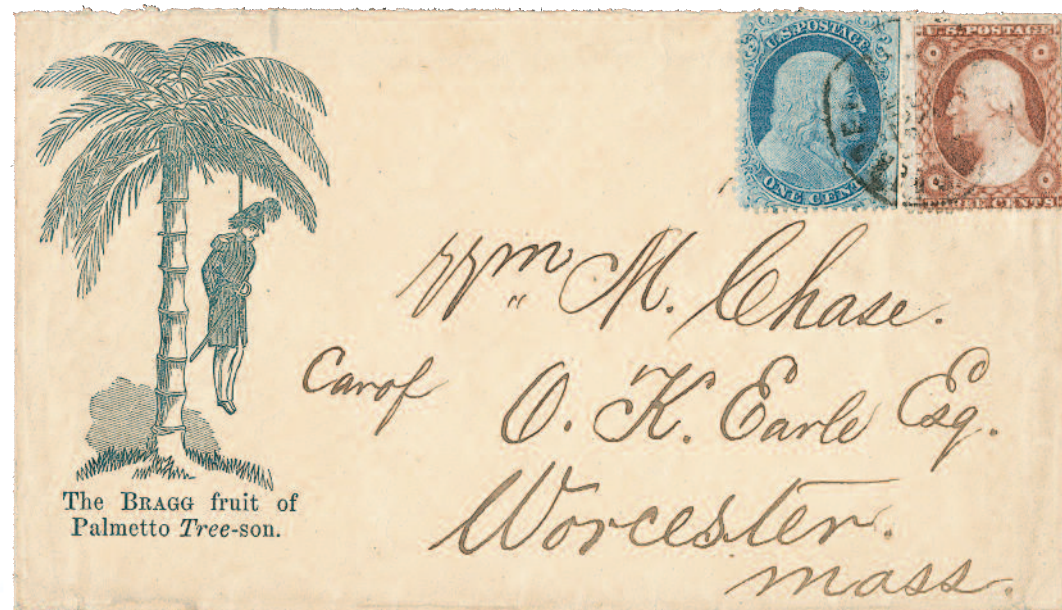 U.S. POSTAGE
ONE CENT
U.S. POSTAGE
CENTS
Wm. M. Chase.
Carof O. K. Earle Esq.
Worcester.
mass.
The BRAGG fruit of
Palmetto Tree-son.